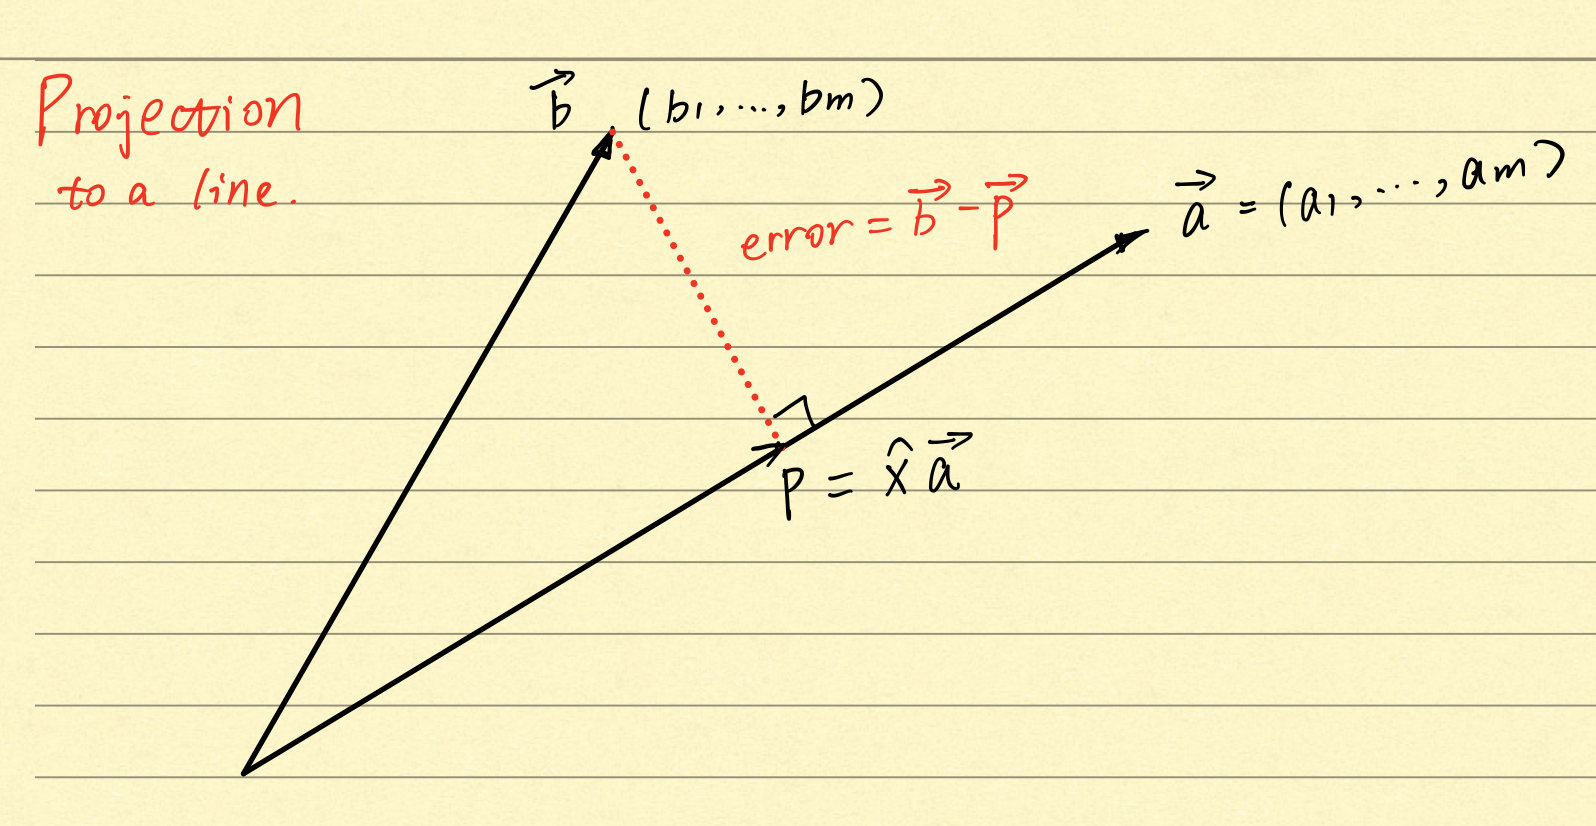 Projection
to a line.
b⃗ (b₁, ..., bm)
error = b⃗ - p⃗
a⃗ = (a₁, ..., am)
p = x̂ a⃗